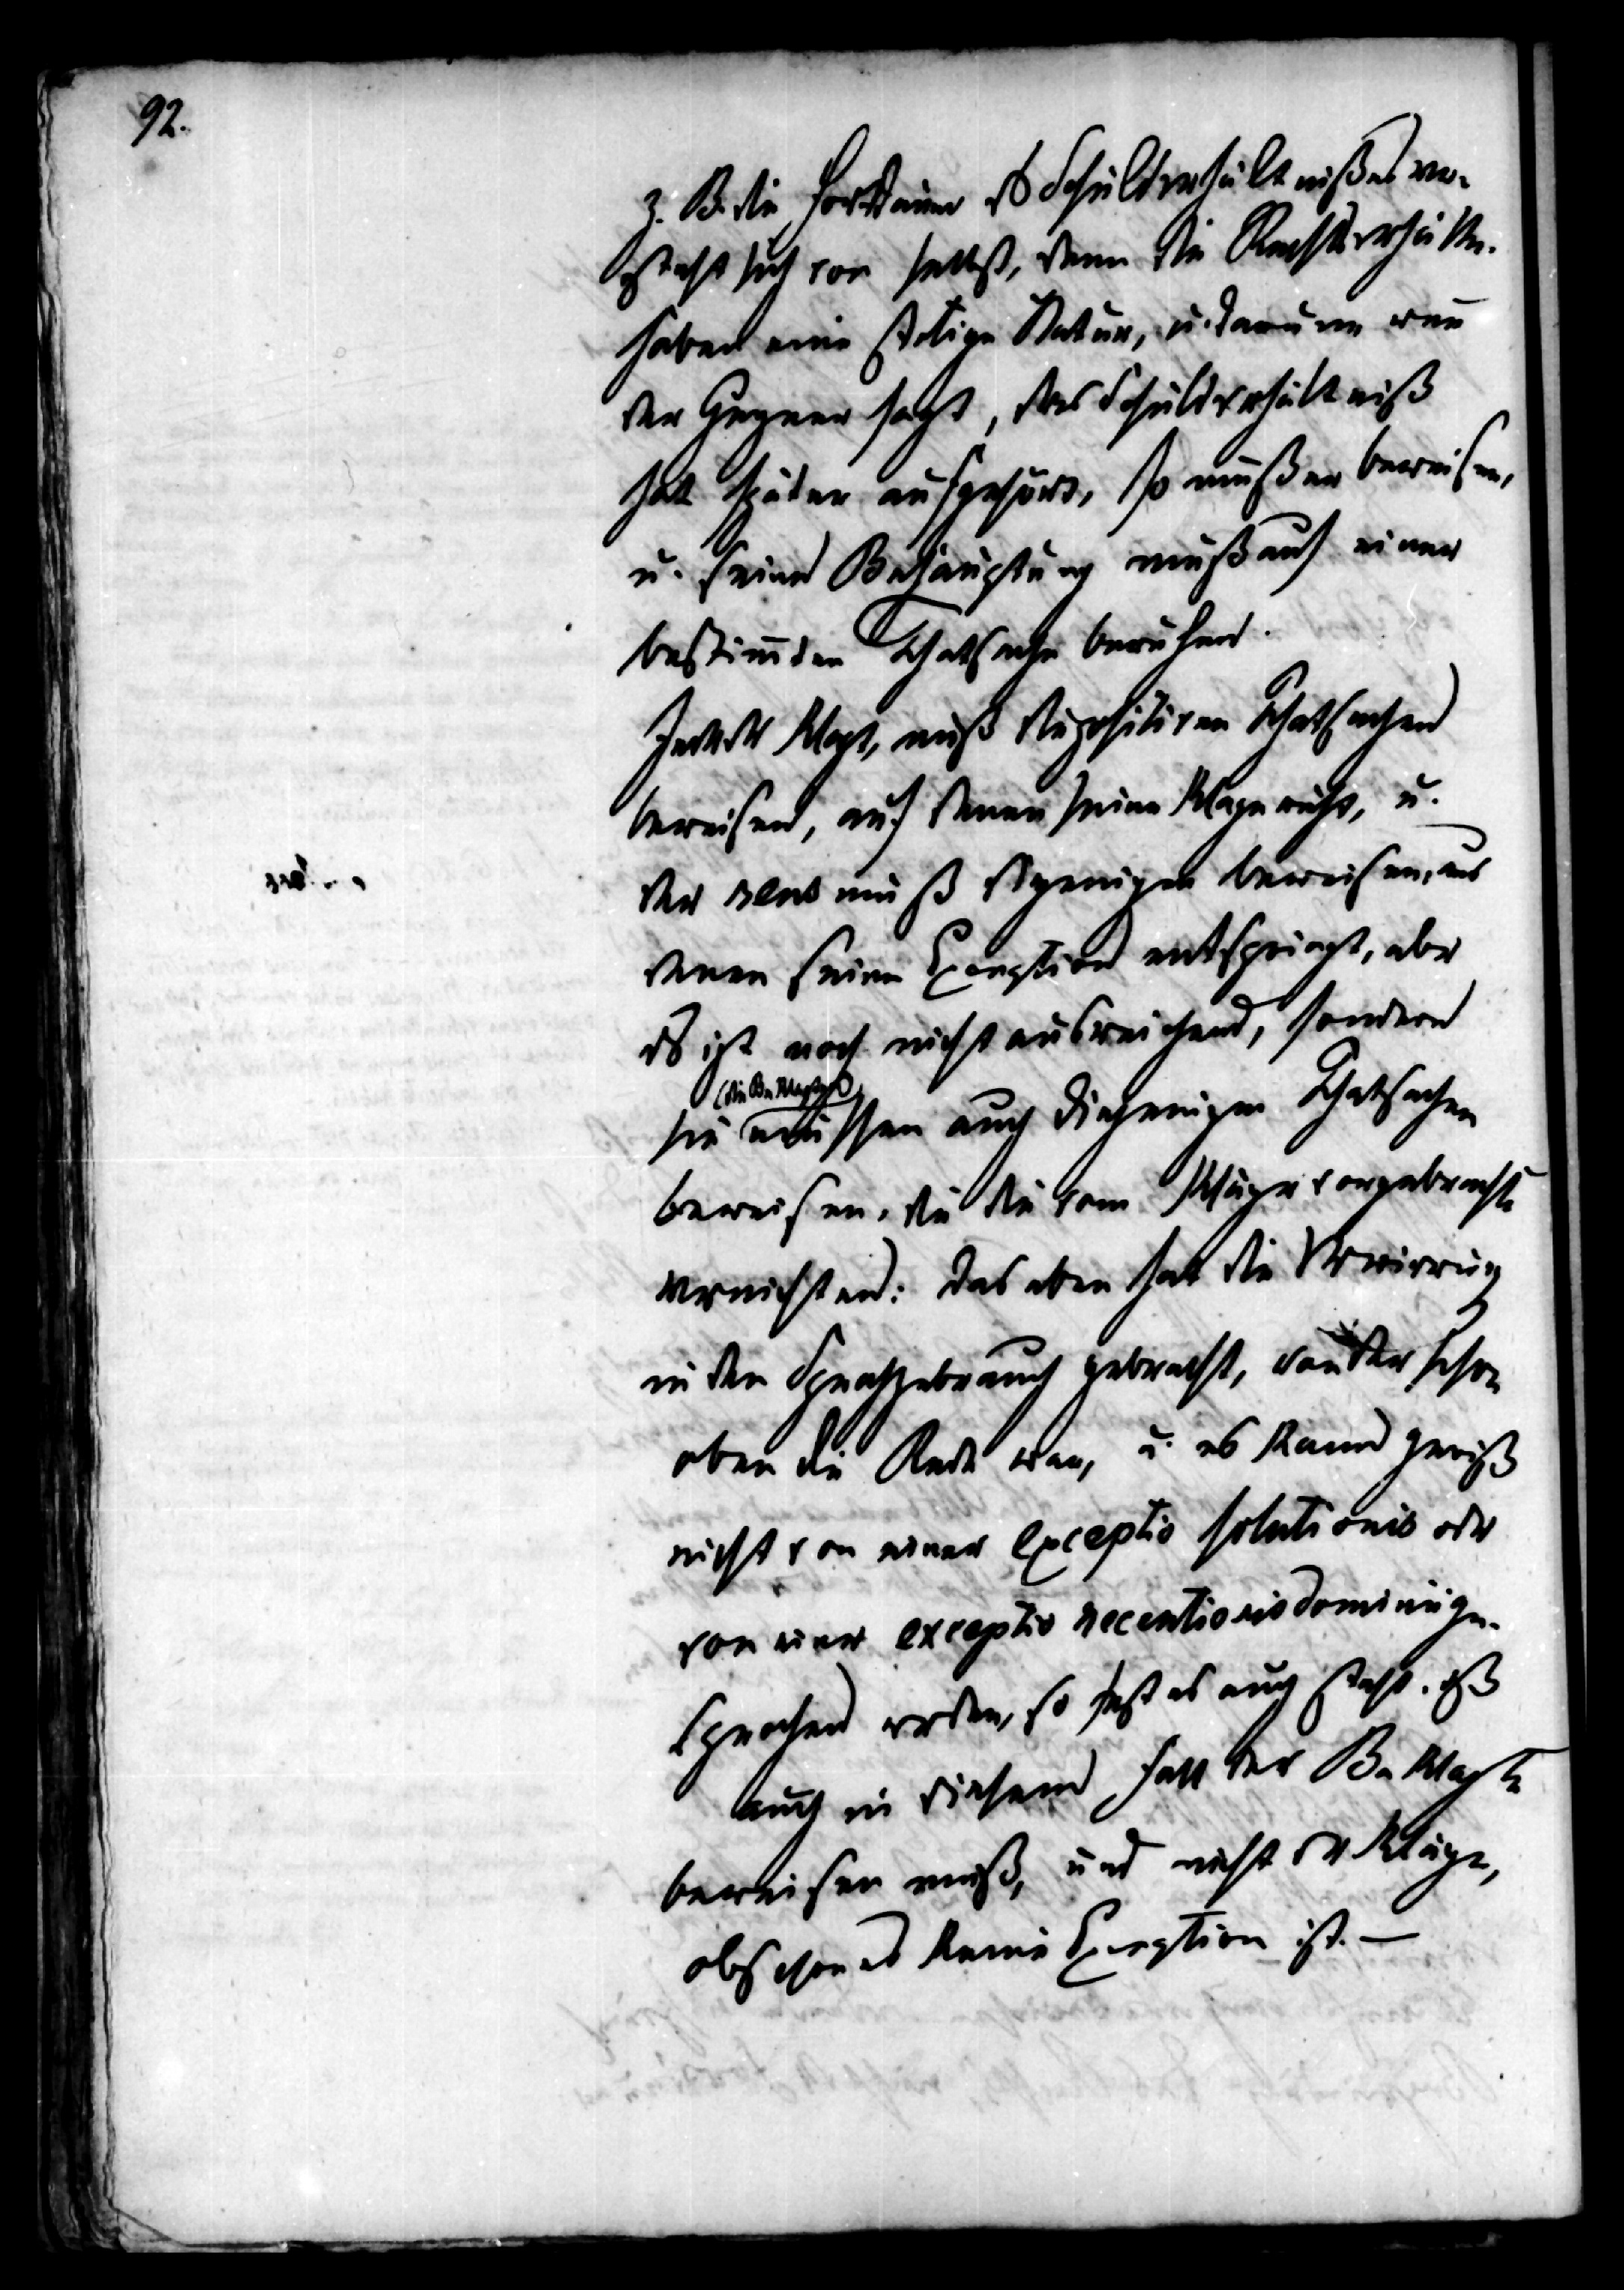 92.
z. B. die Fortdauer des Schuldverhältnißes ver-
steht sich von selbst, denn die Rechtsverhältn.
haben eine stetige Natur, u. darum wenn
der Gegner sagt, das Schuldverhältniß
hat später aufgehört, so muß er beweisen,
u. seine Behauptung muß auf einer
bestimten Thatsache beruhen.
Jeder der klagt, muß die positiven Thatsachen
beweisen, auf denen seine Klage ruht, u.
der reus muß diejenigen beweisen, aus
denen seine Exception entspringt, aber
es ist noch nicht ausreichend, sondern
(die Beklagten)
sie müssen auch diejenigen Thatsachen
beweisen, die die vom Kläger vorgebrachte
vernichten: das eben hat die Verwirrung
in den Sprachgebrauch gebracht, von der schon
oben die Rede war, u. es kann gewiß
nicht von einer exceptio solutionis oder
von einer exceptio recentioris dominii ge-
sprochen werden, so fest es auch steht, daß
auch in diesem Fall der Beklagte
beweisen muß, und nicht der Kläger,
obschon es keine Exception ist. —